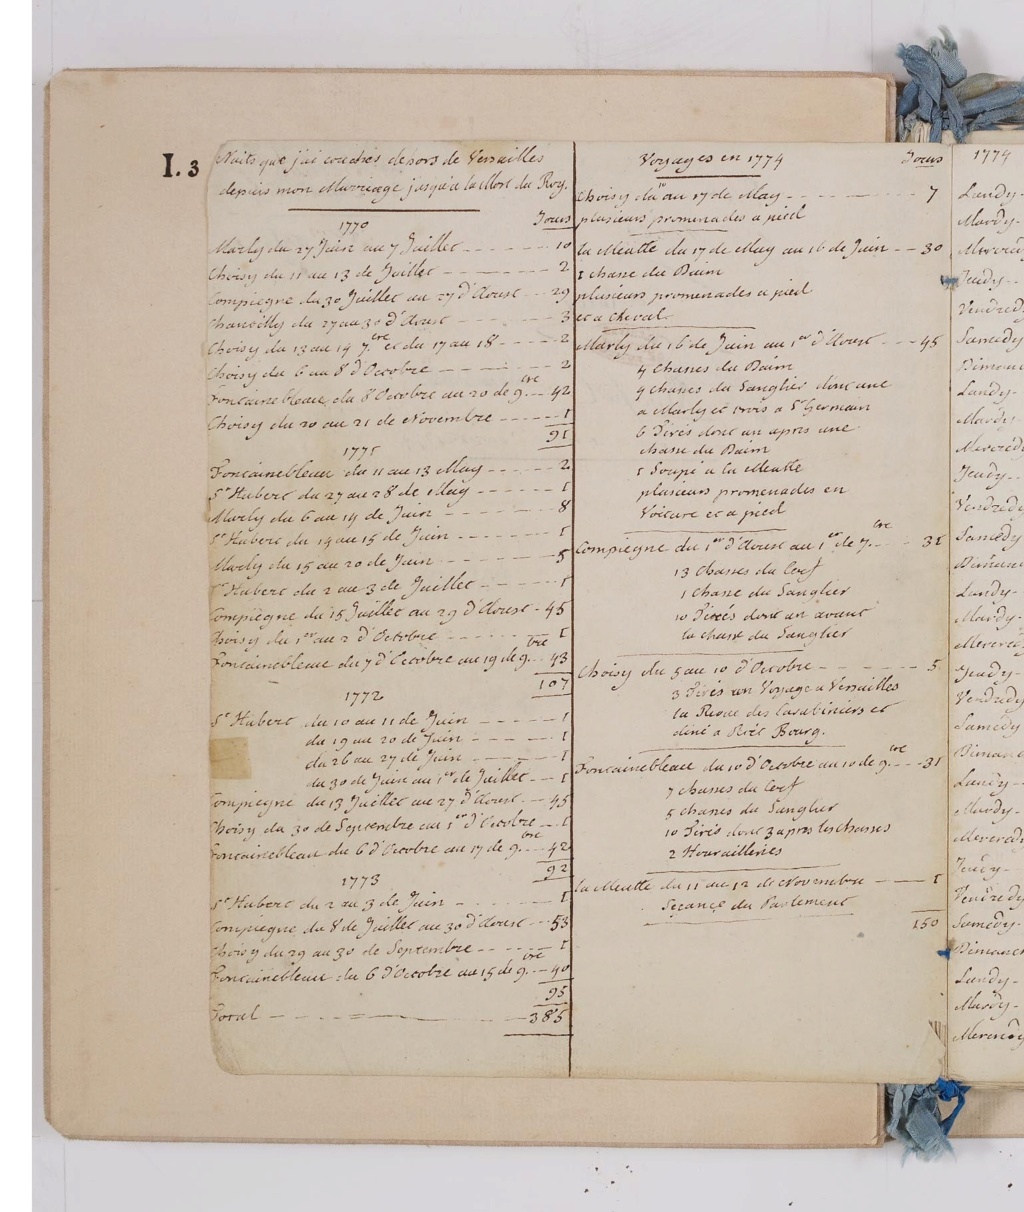 I. 3
Nuits que j'ai couchés dehors de Versailles
depuis mon Marriage jusqu'a la Mort du Roy.
1770 Jours
Marly du 27 Juin au 7 Juillet 10
Choisy du 11 au 13 de Juillet 2
Compiegne du 30 Juillet au 27 d'Aoust 29
Chantilly du 27 au 30 d'Aoust 3
Choisy du 13 au 14 7.bre et du 17 au 18 2
Choisy du 6 au 8 d'Octobre 2
Fontainebleau du 8 Octobre au 20 de 9.bre 42
Choisy du 20 au 21 de Novembre 1
91
1771
Fontainebleau du 11 au 13 May 2
St Hubert du 27 au 28 de May 1
Marly du 6 au 14 de Juin 8
St Hubert du 14 au 15 de Juin 1
Marly du 15 au 20 de Juin 5
St Hubert du 2 au 3 de Juillet 1
Compiègne du 15 Juillet au 29 d'Aoust 45
Choisy du 1er au 2 d'Octobre 1
Fontainebleau du 7 d'Octobre au 19 de 9.bre 43
107
1772
St Hubert du 10 au 11 de Juin 1
du 19 au 20 de Juin 1
du 26 au 27 de Juin 1
du 30 de Juin au 1er de Juillet 1
Compiegne du 13 Juillet au 27 d'Aoust 45
Choisy du 30 de Septembre au 1er d'Octobre 1
Fontainebleau du 6 d'Octobre au 17 de 9.bre 42
92
1773
St Hubert du 2 au 3 de Juin 1
Compiegne du 8 de Juillet au 30 d'Aoust 53
Choisy du 29 au 30 de Septembre 1
Fontainebleau du 6 d'Octobre au 15 de 9.bre 40
95
Total 385
Voyages en 1774 Jours
Choisy du au 17 de May 7
plusieurs promenades a pied
la Meutte du 17 de May au 16 de Juin 30
1 chasse du Daim
plusieurs promenades a pied
et a cheval
Marly du 16 de Juin au 1er d'Aoust 45
4 chasses du Daim
4 chasses du Sanglier dont une
a Marly et trois a St Germain
6 Tirés dont un apres une
chasse du Daim
1 Soupé a la Meutte
plusieurs promenades en
Voiture et a pied
Compiegne du 1er d'Aoust au 1er de 7.bre 31
13 Chasses du Cerf
1 chasse du Sanglier
10 Tirés dont un avant
la chasse du Sanglier
Choisy du 5 au 10 d'Octobre 5
3 Tirés un Voyage a Versailles
la Revue des Carabiniers et
diné a Petit Bourg.
Fontainebleau du 10 d'Octobre au 10 de 9.bre 31
7 chasses du Cerf
5 chasses du Sanglier
10 Tirés dont 3 apres les chasses
2 Hourailleries
la Meutte du 11 au 12 de Novembre 1
Seçance du Parlement
150
1774
Lundy
Mardy
Mercred
Jeudy
Vendred
Samedy
Dimanc
Lundy
Mardy
Mercredy
Jeudy
Vendredy
Samedy
Dimanc
Lundy
Mardy
Mercredy
Jeudy
Vendredy
Samedy
Dimanc
Lundy
Mardy
Mercredy
Jeudy
Vendredy
Samedy
Dimanch
Lundy
Mardy
Mercredy